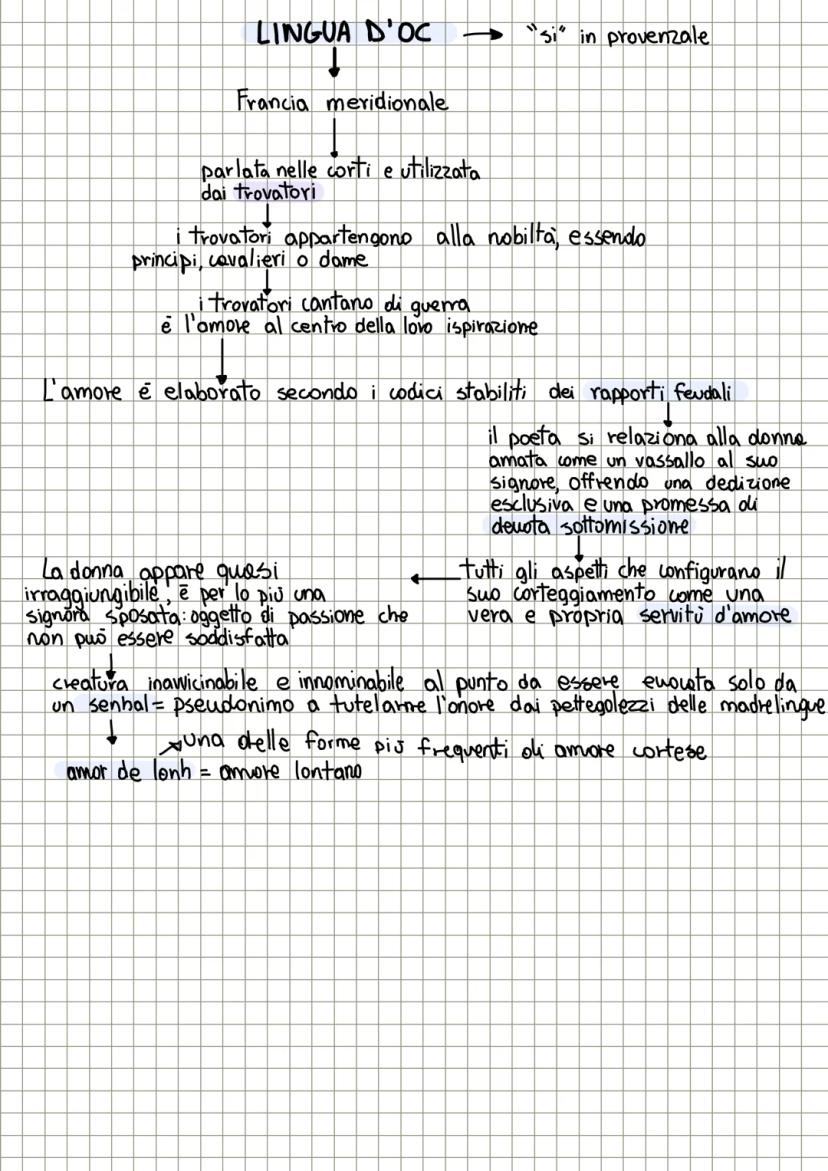 LINGUA D'OC → "si" in provenzale
Francia meridionale
parlata nelle corti e utilizzata
dai trovatori
i trovatori appartengono alla nobiltà, essendo
principi, cavalieri o dame
i trovatori cantano di guerra
è l'amore al centro della loro ispirazione
L'amore è elaborato secondo i codici stabiliti dei rapporti feudali
il poeta si relaziona alla donna
amata come un vassallo al suo
signore, offrendo una dedizione
esclusiva e una promessa di
devota sottomissione
tutti gli aspetti che configurano il
suo corteggiamento come una
vera e propria servitù d'amore
La donna appare quasi
irraggiungibile, è per lo più una
signora sposata: oggetto di passione che
non può essere soddisfatta
creatura inavvicinabile e innominabile al punto da essere evocata solo da
un senhal = pseudonimo a tutelarne l'onore dai pettegolezzi delle madrelingue
una delle forme più frequenti di amore cortese
amor de lonh = amore lontano